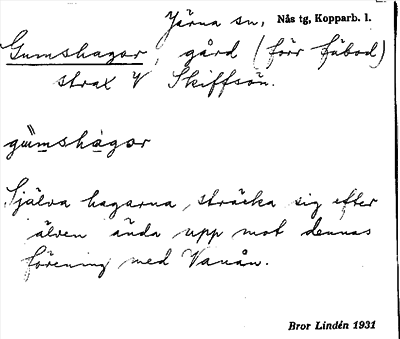 Järna sn, Nås tg, Kopparb. l.
Gumshagor, gård (förr fäbod)
strax V Skiffsön.
gumshagor
Själva hagarna sträcka sig efter
älven ända upp mot dennas
förening med Vanån.
Bror Lindén 1931